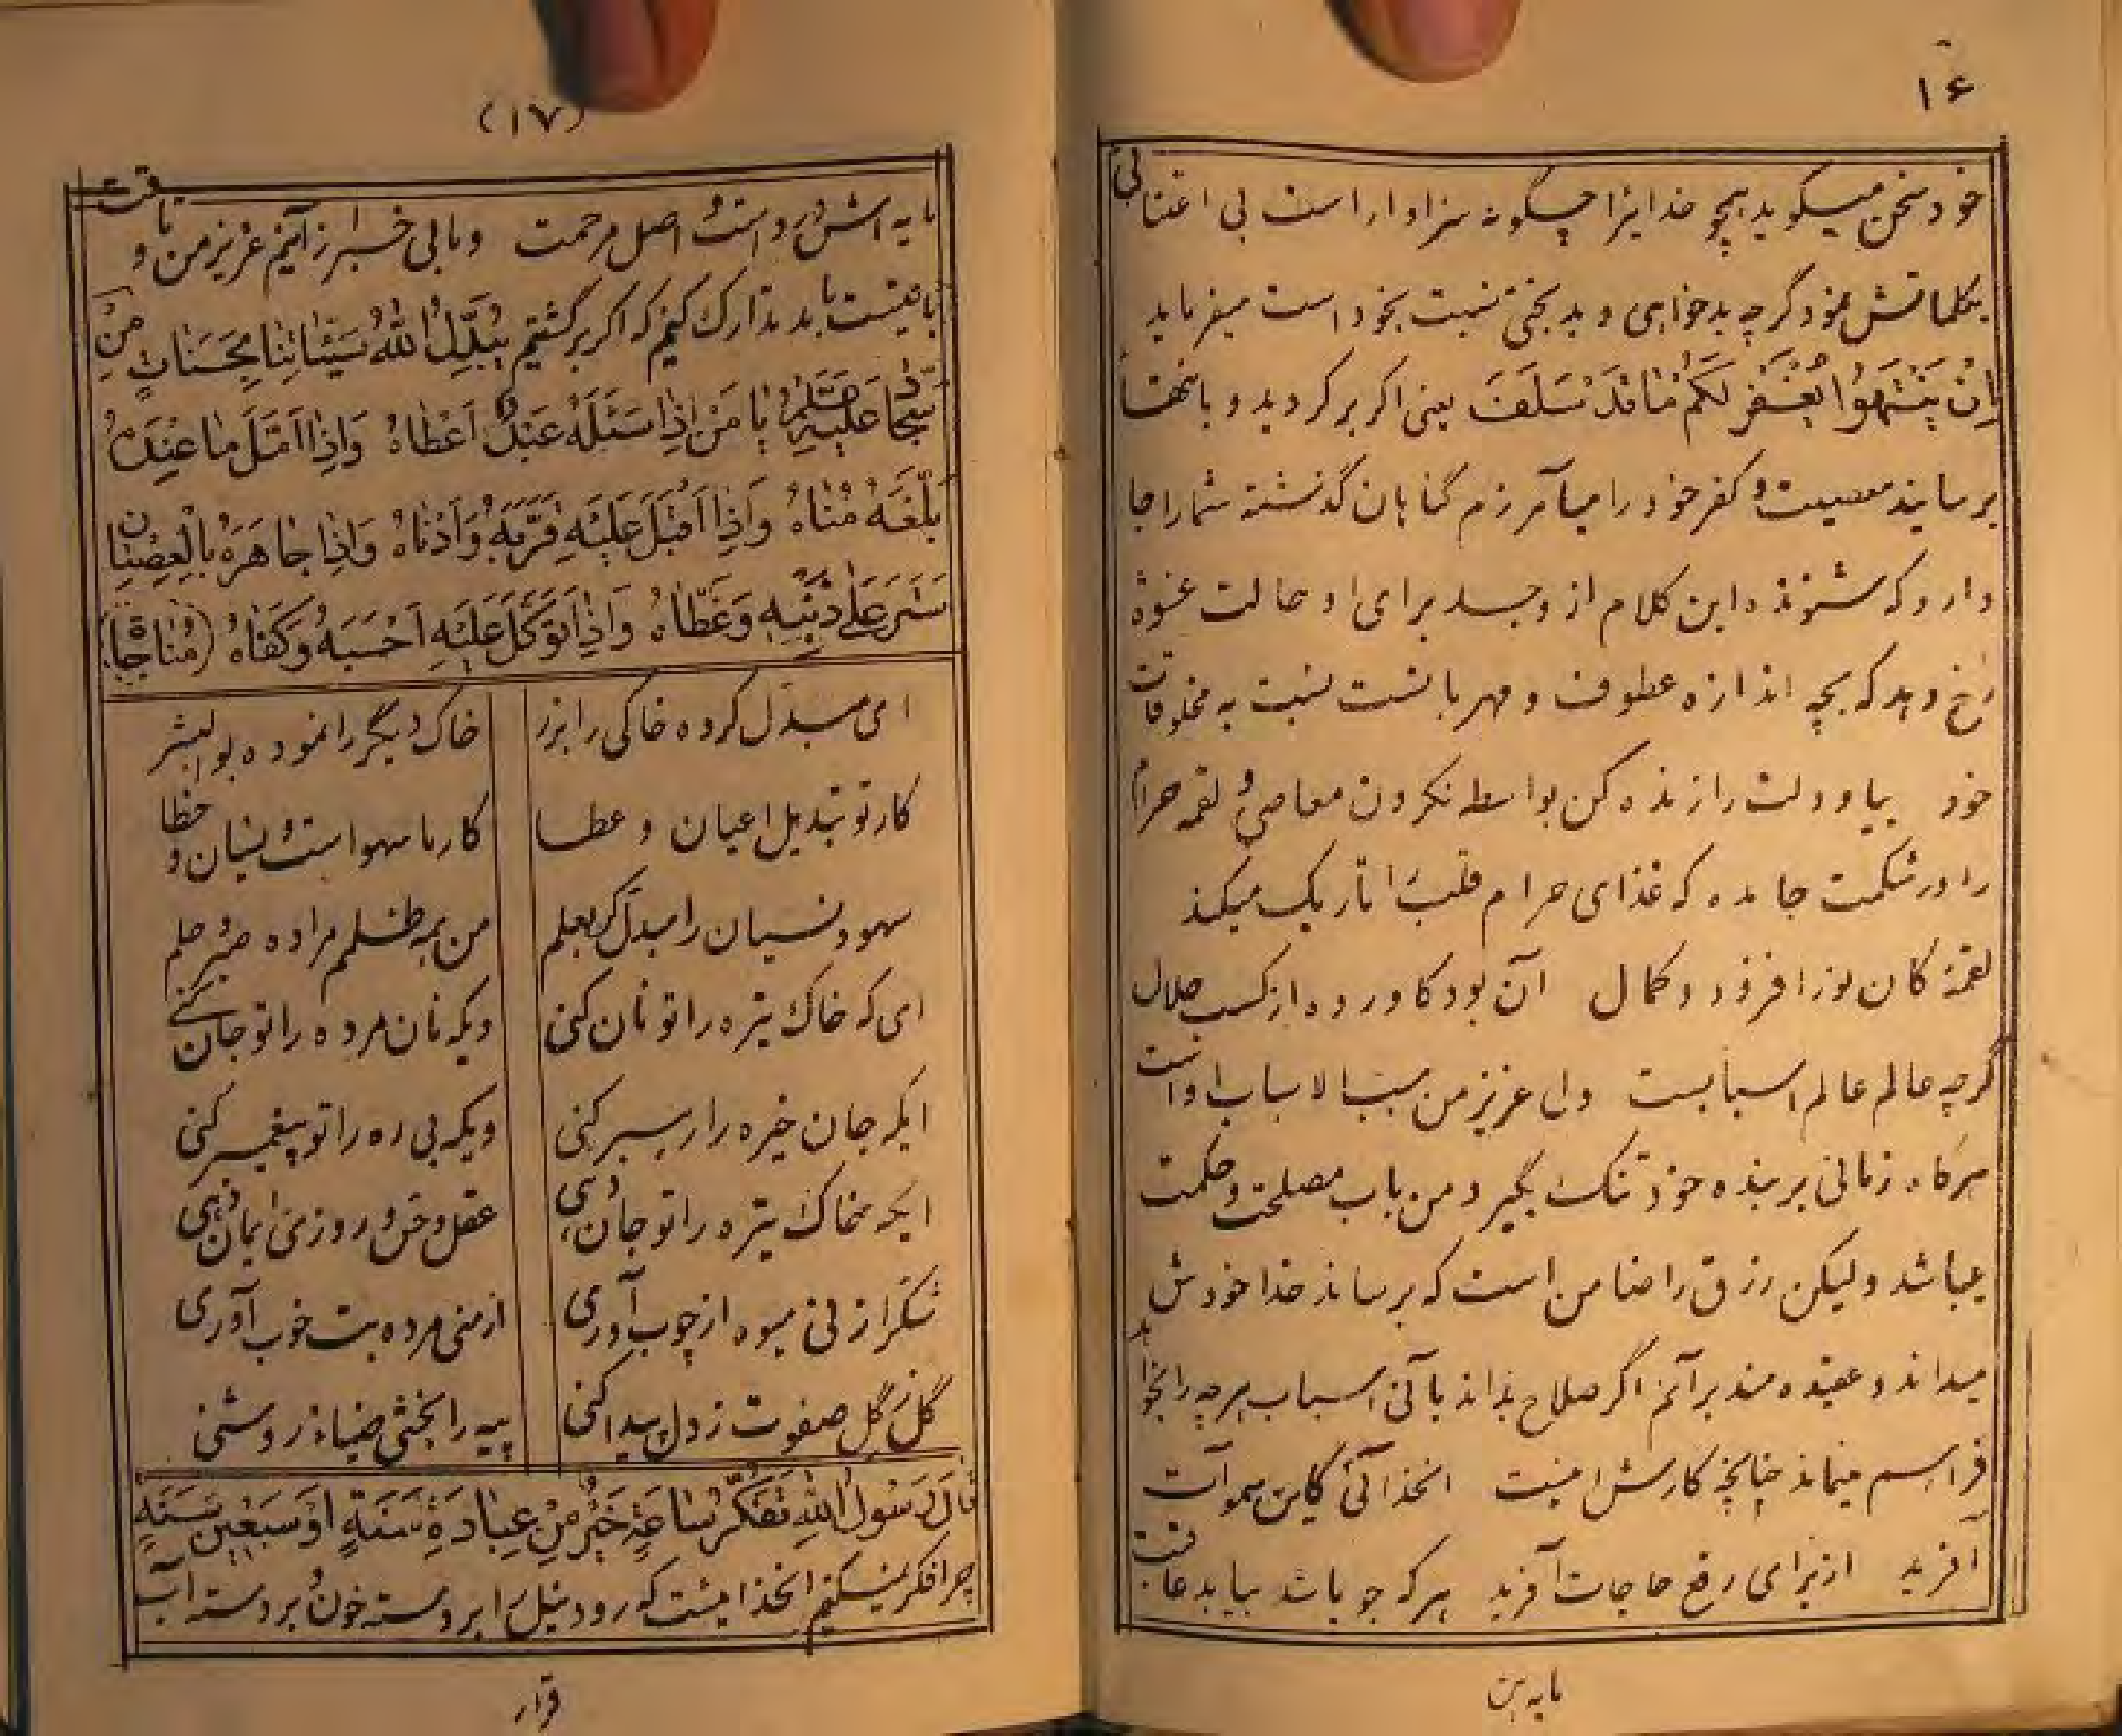 ۱۶
خود سخن میگوید همچو خدایرا چگونه سزاوار است بی اعتنائی
بکلماتش نمود گرچه بدخواهی و بدبختی نسبت بخود است میفرماید
اِنْ یَنْتَهُوا یُغْفَرْ لَکُمْ مٰا قَدْ سَلَفَ یعنی اگر برگردید و بانتها
برسانید معصیت و کفر خود را میآمرزم گناهان گذشته شما را جا
دارد که شنونده این کلام از وجد برای او حالت غشوه
رخ دهد که بچه اندازه عطوف و مهربانست نسبت به مخلوقات
خود بیا و دلت را زنده کن بواسطه نکردن معاصی و لقمه حرام
را در شکمت جا مده که غذای حرام قلب را تاریک میکند
لقمهٔ کان نور افزود و کمال آن بود کاورده از کسب حلال
گرچه عالم عالم اسبابست ولی عزیز من مسبب الاسباب او است
هرگاه زمانی بر بنده خود تنگ بگیرد من باب مصلحت و حکمت
میباشد ولیکن رزق را ضامن است که برساند خدا خودش
میداند و عقیده مند برآنم اگر صلاح بداند بآنی اسباب هرچه را بخواهد
فراهم مینماید چنانچه کارش اینست انخدائی کاین سموات
آفرید از برای رفع حاجات آفرید هر که جویا شد بیابد عاقبت
مایه‌اش
(۱۷)
مایه اش درد است و اصل مرحمت و مابی خبر از آنیم عزیز من تا وقت
باقیست باید تدارک کنیم که اگر برگشتیم یُبَدِّلُ اللهُ سَیِّئٰاتِنٰا بِحَسَنٰاتٍ مِنْ
یٰا مَنْ اِذٰا سَئَلَهُ عَبْدٌ اَعْطٰاهُ وَاِذٰا اَمَّلَ مٰا عِنْدَهُ
بَلَّغَهُ مُنٰاهُ وَاِذٰا اَقْبَلَ عَلَیْهِ قَرَّبَهُ وَاَدْنٰاهُ وَاِذٰا جٰاهَرَهُ بِالْعِصْیٰانِ
سَتَرَ عَلیٰ ذَنْبِهِ وَغَطّٰاهُ وَاِذٰا تَوَکَّلَ عَلَیْهِ اَحْسَبَهُ وَکَفٰاهُ (مُنٰاجٰاة)
ای مبدل کرده خاکی را بزر خاک دیگر را نموده بوالبشر
کار تو تبدیل اعیان و عطا کار ما سهو است و نسیان و خطا
سهو و نسیان را مبدل کن بعلم من همه ظلمم مرا ده صبر و حلم
ای که خاک تیره را تو نان کنی ویکه نان مرده را تو جان کنی
ایکه جان خیره را رهبر کنی ویکه بی ره را تو پیغمبر کنی
ایکه خاک تیره را تو جان دهی عقل و حس و روزی و ایمان دهی
شکر از نی میوه از چوب آوری از منی مرده بت خوب آوری
گل ز گل صفوت ز دل پیدا کنی پیه را بخشی ضیاء و روشنی
قٰالَ رَسُولُ اللهِ تَفَکُّرُ سٰاعَةٍ خَیْرٌ مِنْ عِبٰادَةِ سَنَةٍ اَوْ سَبْعینَ سَنَةٍ
چرا فکر نمیکنیم انخدائیست که رود نیل را بر دسته خون و بر دسته آب
قرار